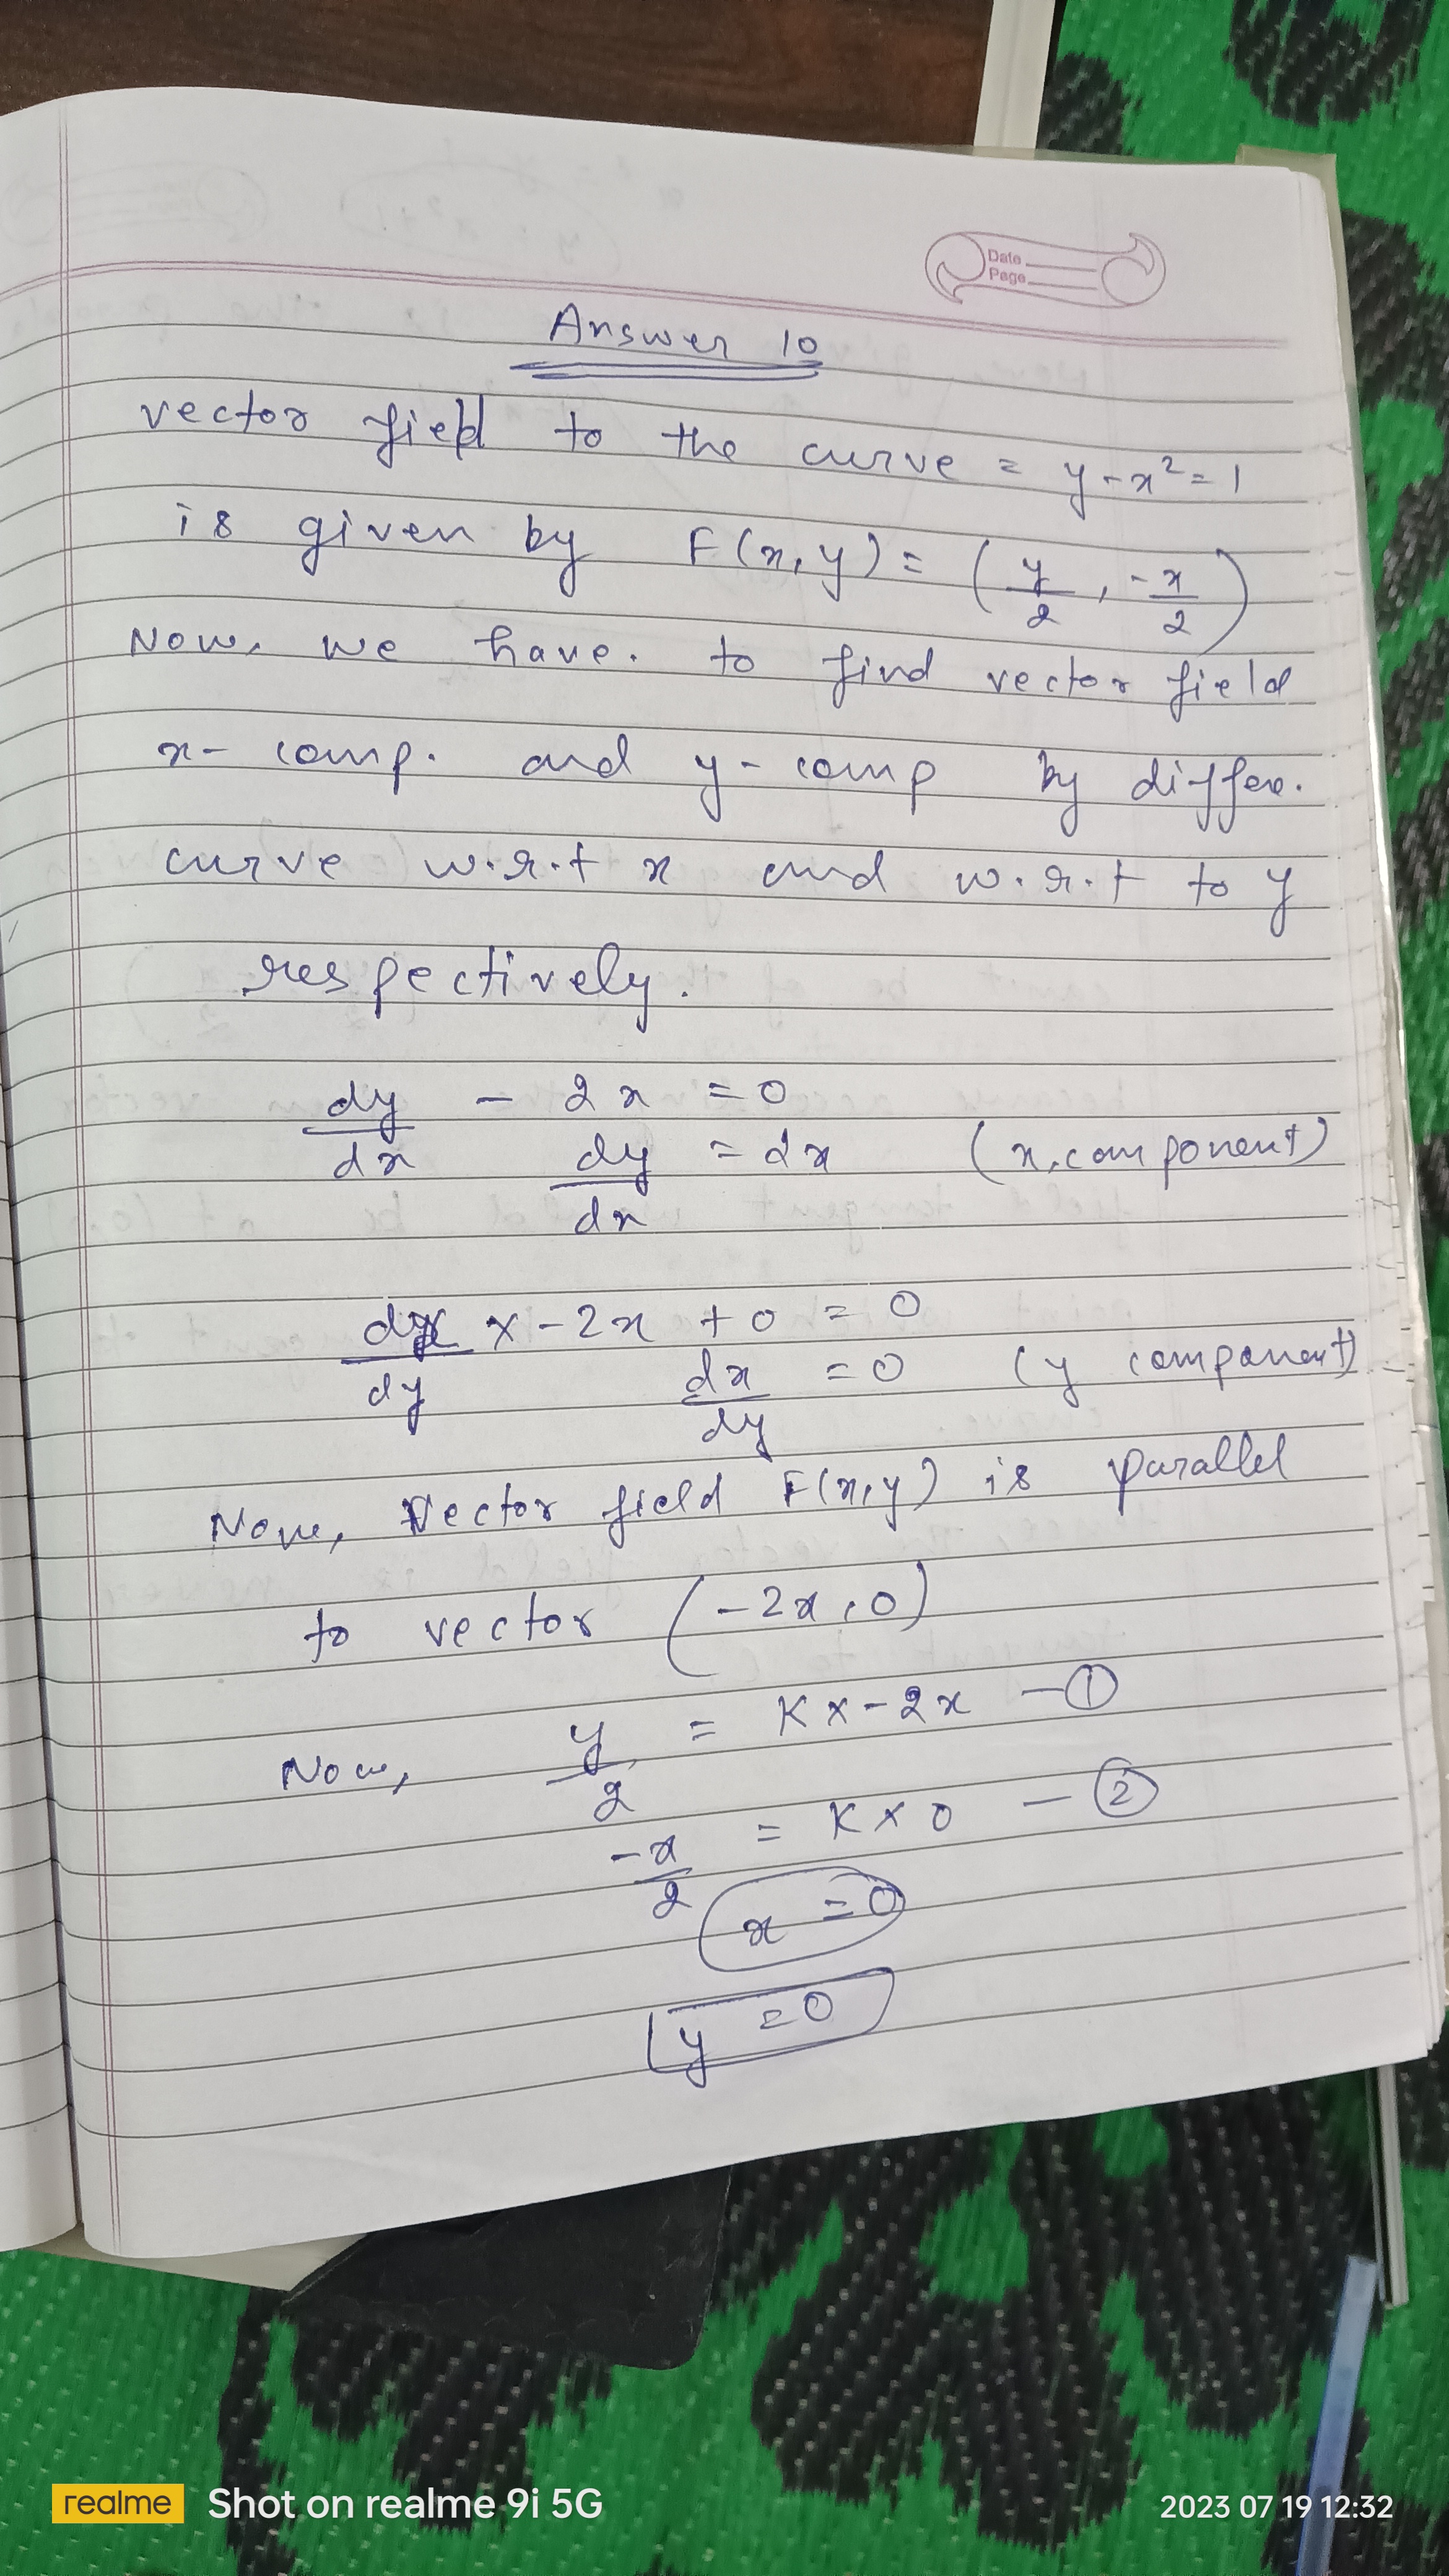 Date
Page
Answer 10
vector field to the curve = y-x²=1
is given by F(x,y) = (y/2, -x/2)
Now, we have. to find vector field
x- comp. and y- comp by differe.
curve w.r.t x and w.r.t to y
respectively.
dy/dx - 2x = 0
dy/dx = 2x (x.component)
dx/dy x -2x + 0 = 0
dx/dy = 0 (y component)
Now, Vector field F(x,y) is parallel
to vector (-2x, 0)
Now, y/2 = K x -2x - ①
-x/2 = K x 0 - ②
x = 0
y = 0
realme Shot on realme 9i 5G
2023 07 19 12:32